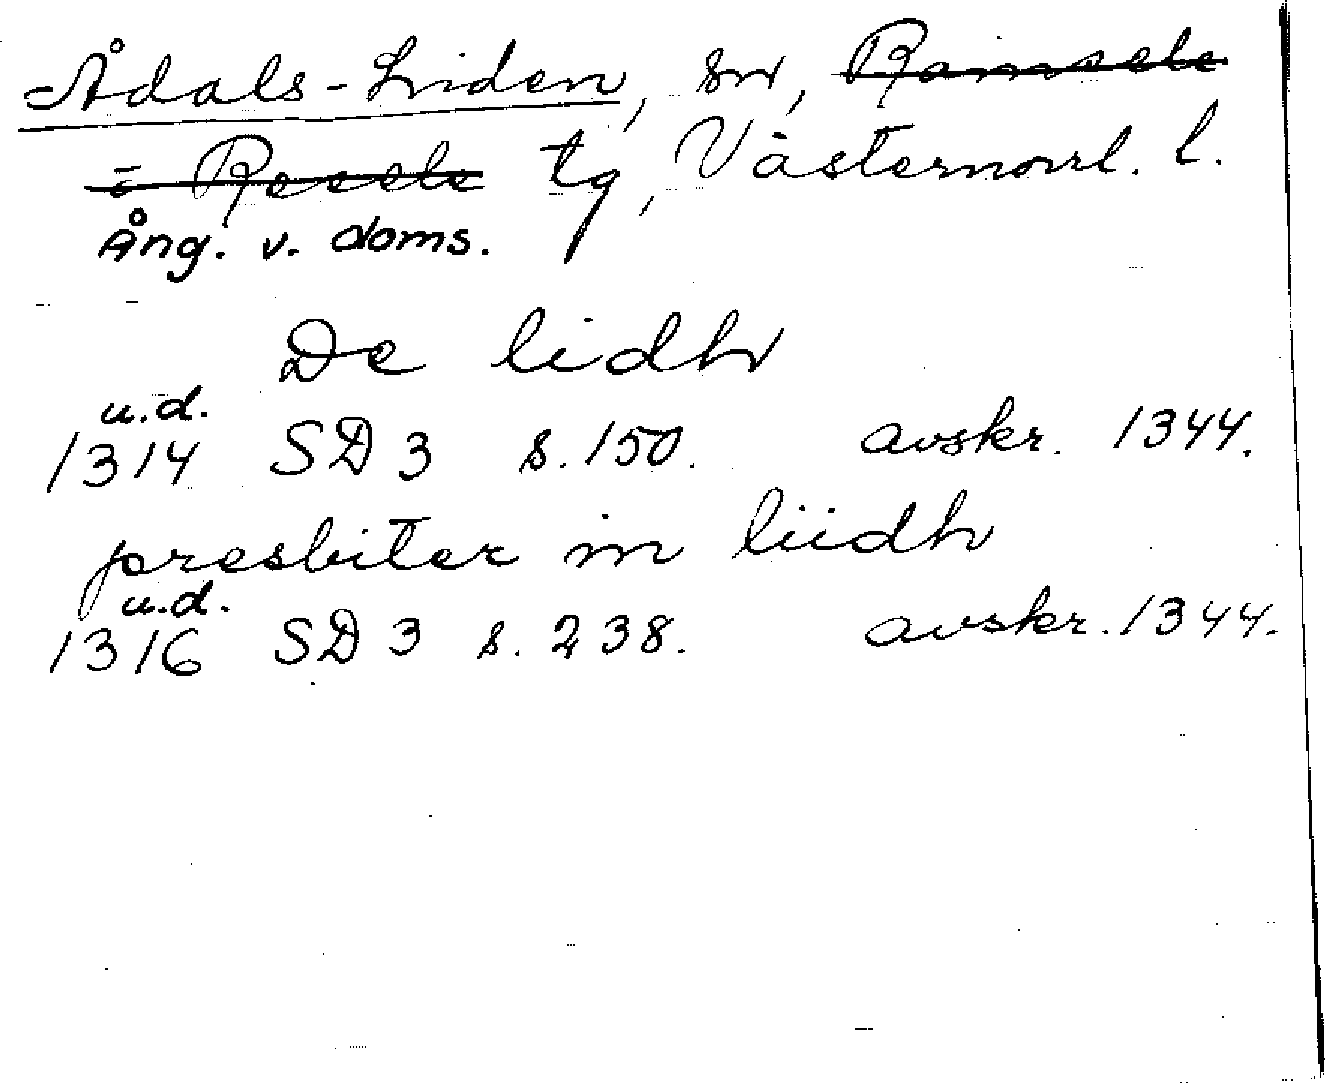 Ådals-Liden, sn, Ramsele
o Resele tg, Västernorrl. l.
Ång. v. doms.
De lidh
u.d.
1314 SD 3 s. 150. avskr. 1344.
presbiter in liidh
u.d.
1316 SD 3 s. 238. avskr. 1344.